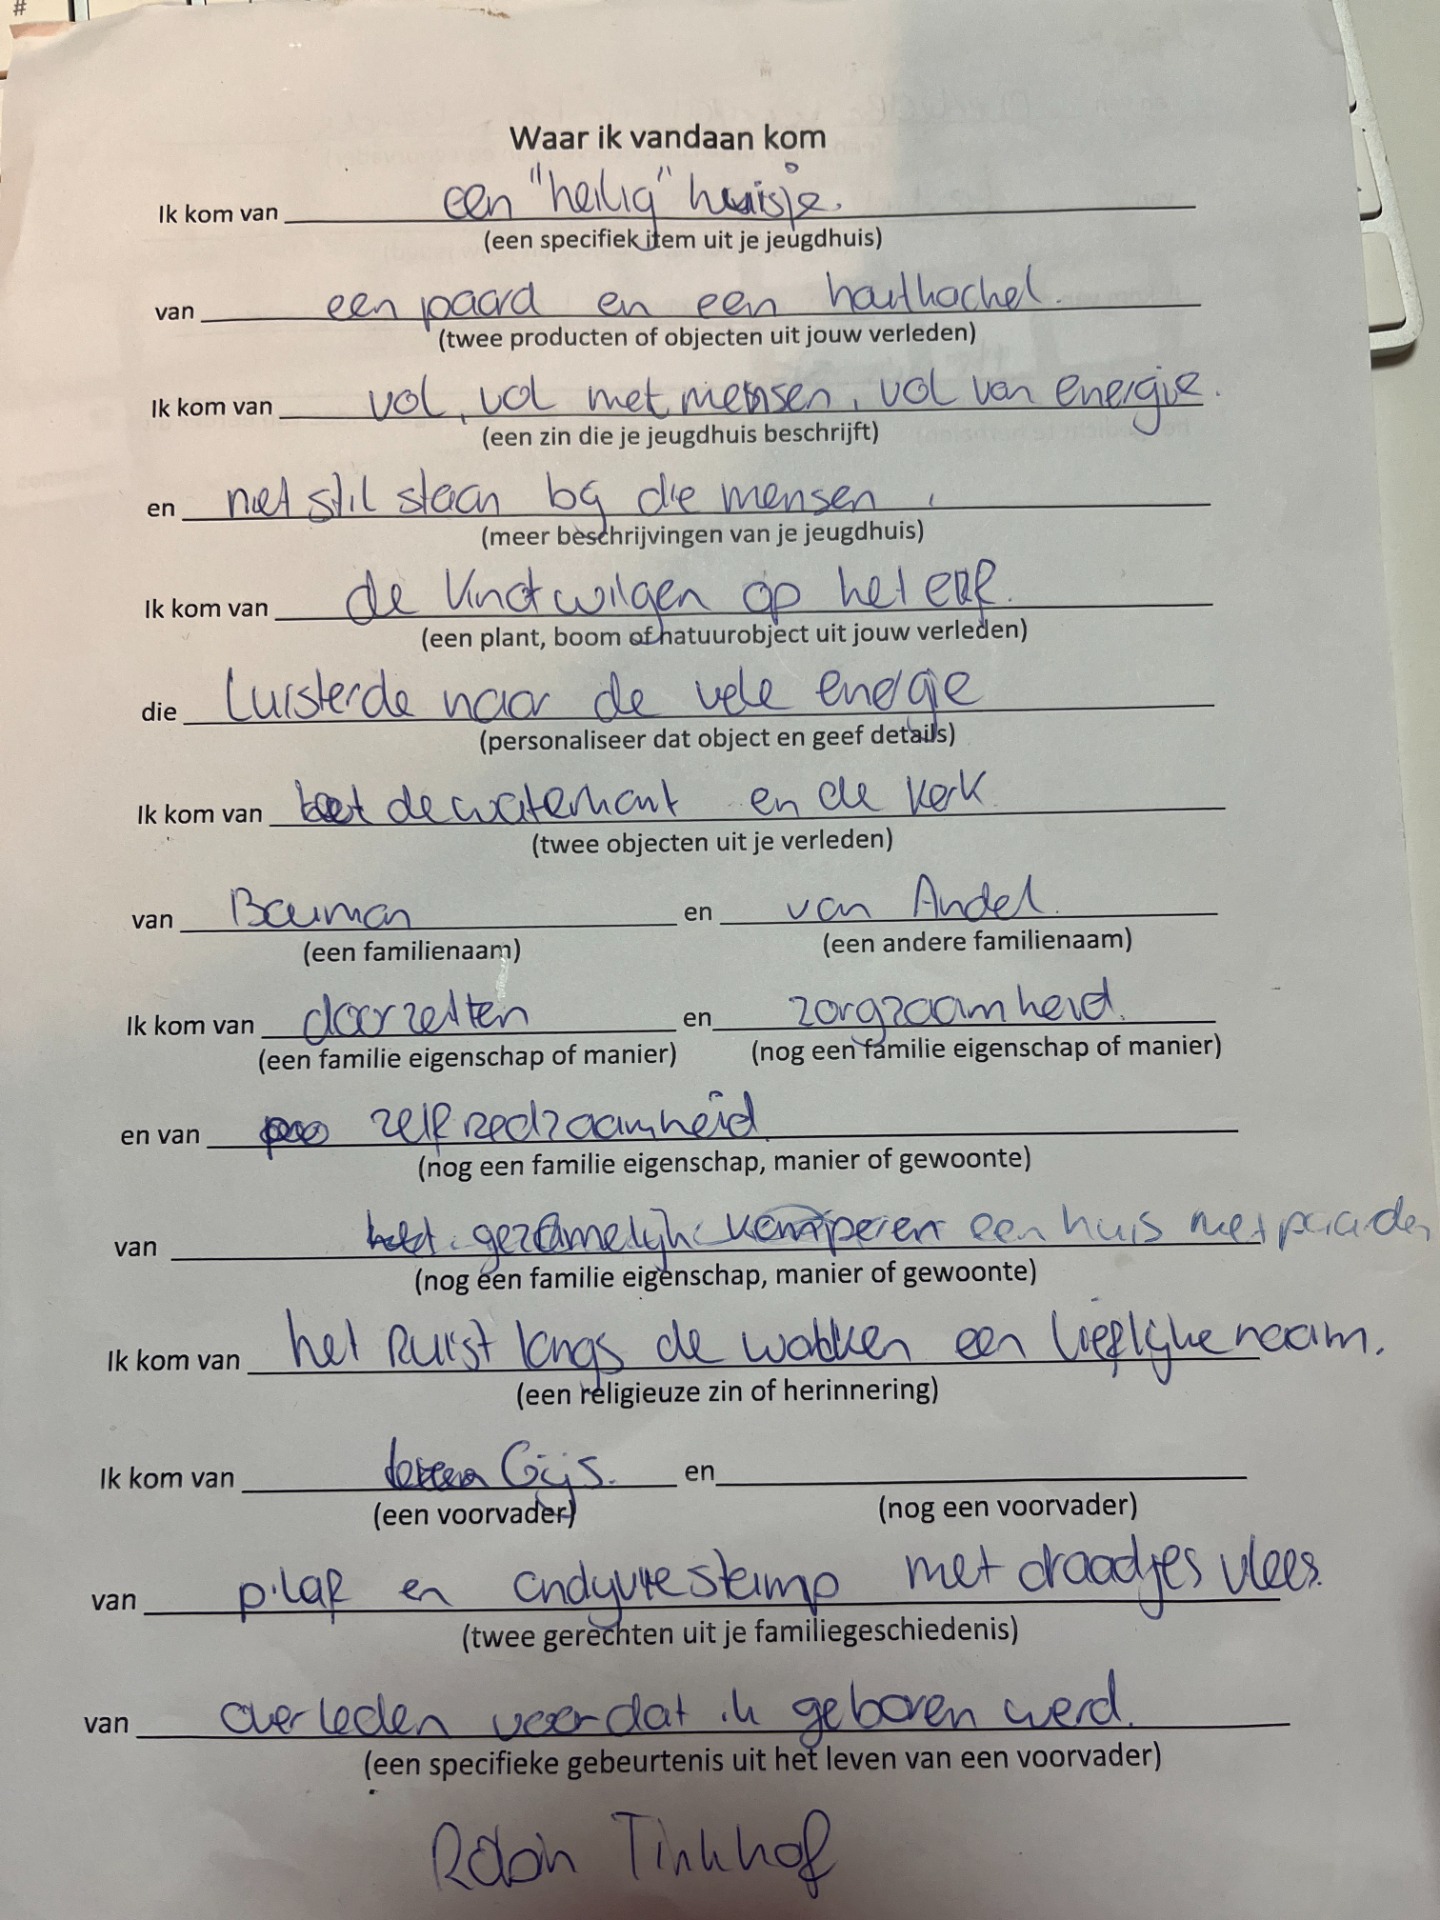 #
Waar ik vandaan kom
Ik kom van een "heilig" huisje.
(een specifiek item uit je jeugdhuis)
van een paard en een houtkachel.
(twee producten of objecten uit jouw verleden)
Ik kom van vol, vol met mensen, vol van energie.
(een zin die je jeugdhuis beschrijft)
en niet stil staan bij die mensen,
(meer beschrijvingen van je jeugdhuis)
Ik kom van de knotwilgen op het erf.
(een plant, boom of natuurobject uit jouw verleden)
die luisterde naar de vele energie
(personaliseer dat object en geef details)
Ik kom van de waterkant en de kerk
(twee objecten uit je verleden)
van Bouman en van Andel.
(een familienaam) (een andere familienaam)
Ik kom van doorzetten en zorgzaamheid.
(een familie eigenschap of manier) (nog een familie eigenschap of manier)
en van zelfredzaamheid
(nog een familie eigenschap, manier of gewoonte)
van gezamelijk kamperen een huis met paarden
(nog een familie eigenschap, manier of gewoonte)
Ik kom van het ruist langs de wolken een lieflijke naam.
(een religieuze zin of herinnering)
Ik kom van Gijs. en
(een voorvader) (nog een voorvader)
van pilaf en andyviestamp met draadjes vlees.
(twee gerechten uit je familiegeschiedenis)
van overleden voordat ik geboren werd.
(een specifieke gebeurtenis uit het leven van een voorvader)
Robin Tinkhof